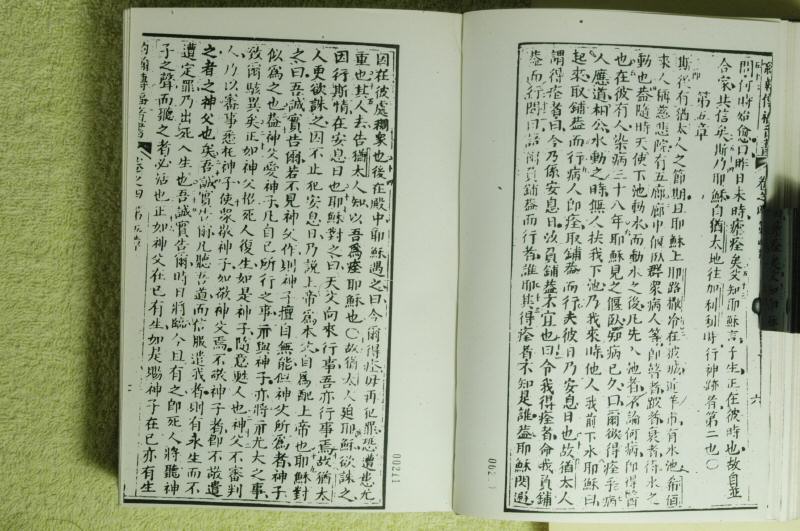 問何時始愈曰昨日未時瘧痊矣父知耶穌言子生正在彼時也故自並
合家共信矣斯乃耶穌自猶太地往加利利時行神跡者第二也
第五章
斯後有猶太人之節期且耶穌上耶路撒冷在彼城近羊市有水池
來人稱慈悲院有五廊廊中偃臥群眾病人等即瞽者跛者衰者待水之
動也蓋隨時天使下池動水而動水之後凡先入池者不論何病即得醫
也在彼有人染病三十八年耶穌見之偃臥知病已久曰爾欲得痊乎病
人應道相公水動之時無人扶我下池乃我來時他人我前下水耶穌曰
起來取鋪蓋而行病人即痊取鋪蓋而行夫彼日乃安息日也故猶太人
謂得痊者曰今乃係安息日汝負鋪蓋不宜也曰令我得痊者命我負鋪
蓋而行問曰話爾負鋪蓋而行者誰耶其得痊者不知是誰蓋耶穌閃避
因在彼處稠眾也後在殿中耶穌遇之曰今爾得痊毋再犯罪恐遭患尤
重也其人去告猶太人知以吾為痊耶穌也故猶太人迫耶穌欲誅之
因行斯情在安息日也耶穌對之曰天父向來行事吾亦行事焉故猶太
人更欲誅之因不止犯安息日乃說上帝為本父自為配上帝也耶穌對
之曰吾誠實告爾若不見神父作則神子擅自無能但神父所為者神子
似為之也蓋神父愛神子凡自已所行之事示與神子亦將示尤大之事
致爾駭異矣正如神父招死人復生如是神子隨意甦人也神父不審判
人乃以審事悉托神子使眾敬神子如敬神父焉不敬神子者即不敬遣
之者之神父也吾誠實告爾凡聽吾道而信服遣我者則有永生而不
遭定罪乃出死入生也吾誠實告爾時日將臨今且有之即死人將聽神
子之聲而聽之者必活也正如神父在已有生如是賜神子在已亦有生
約翰傳福音書
00211